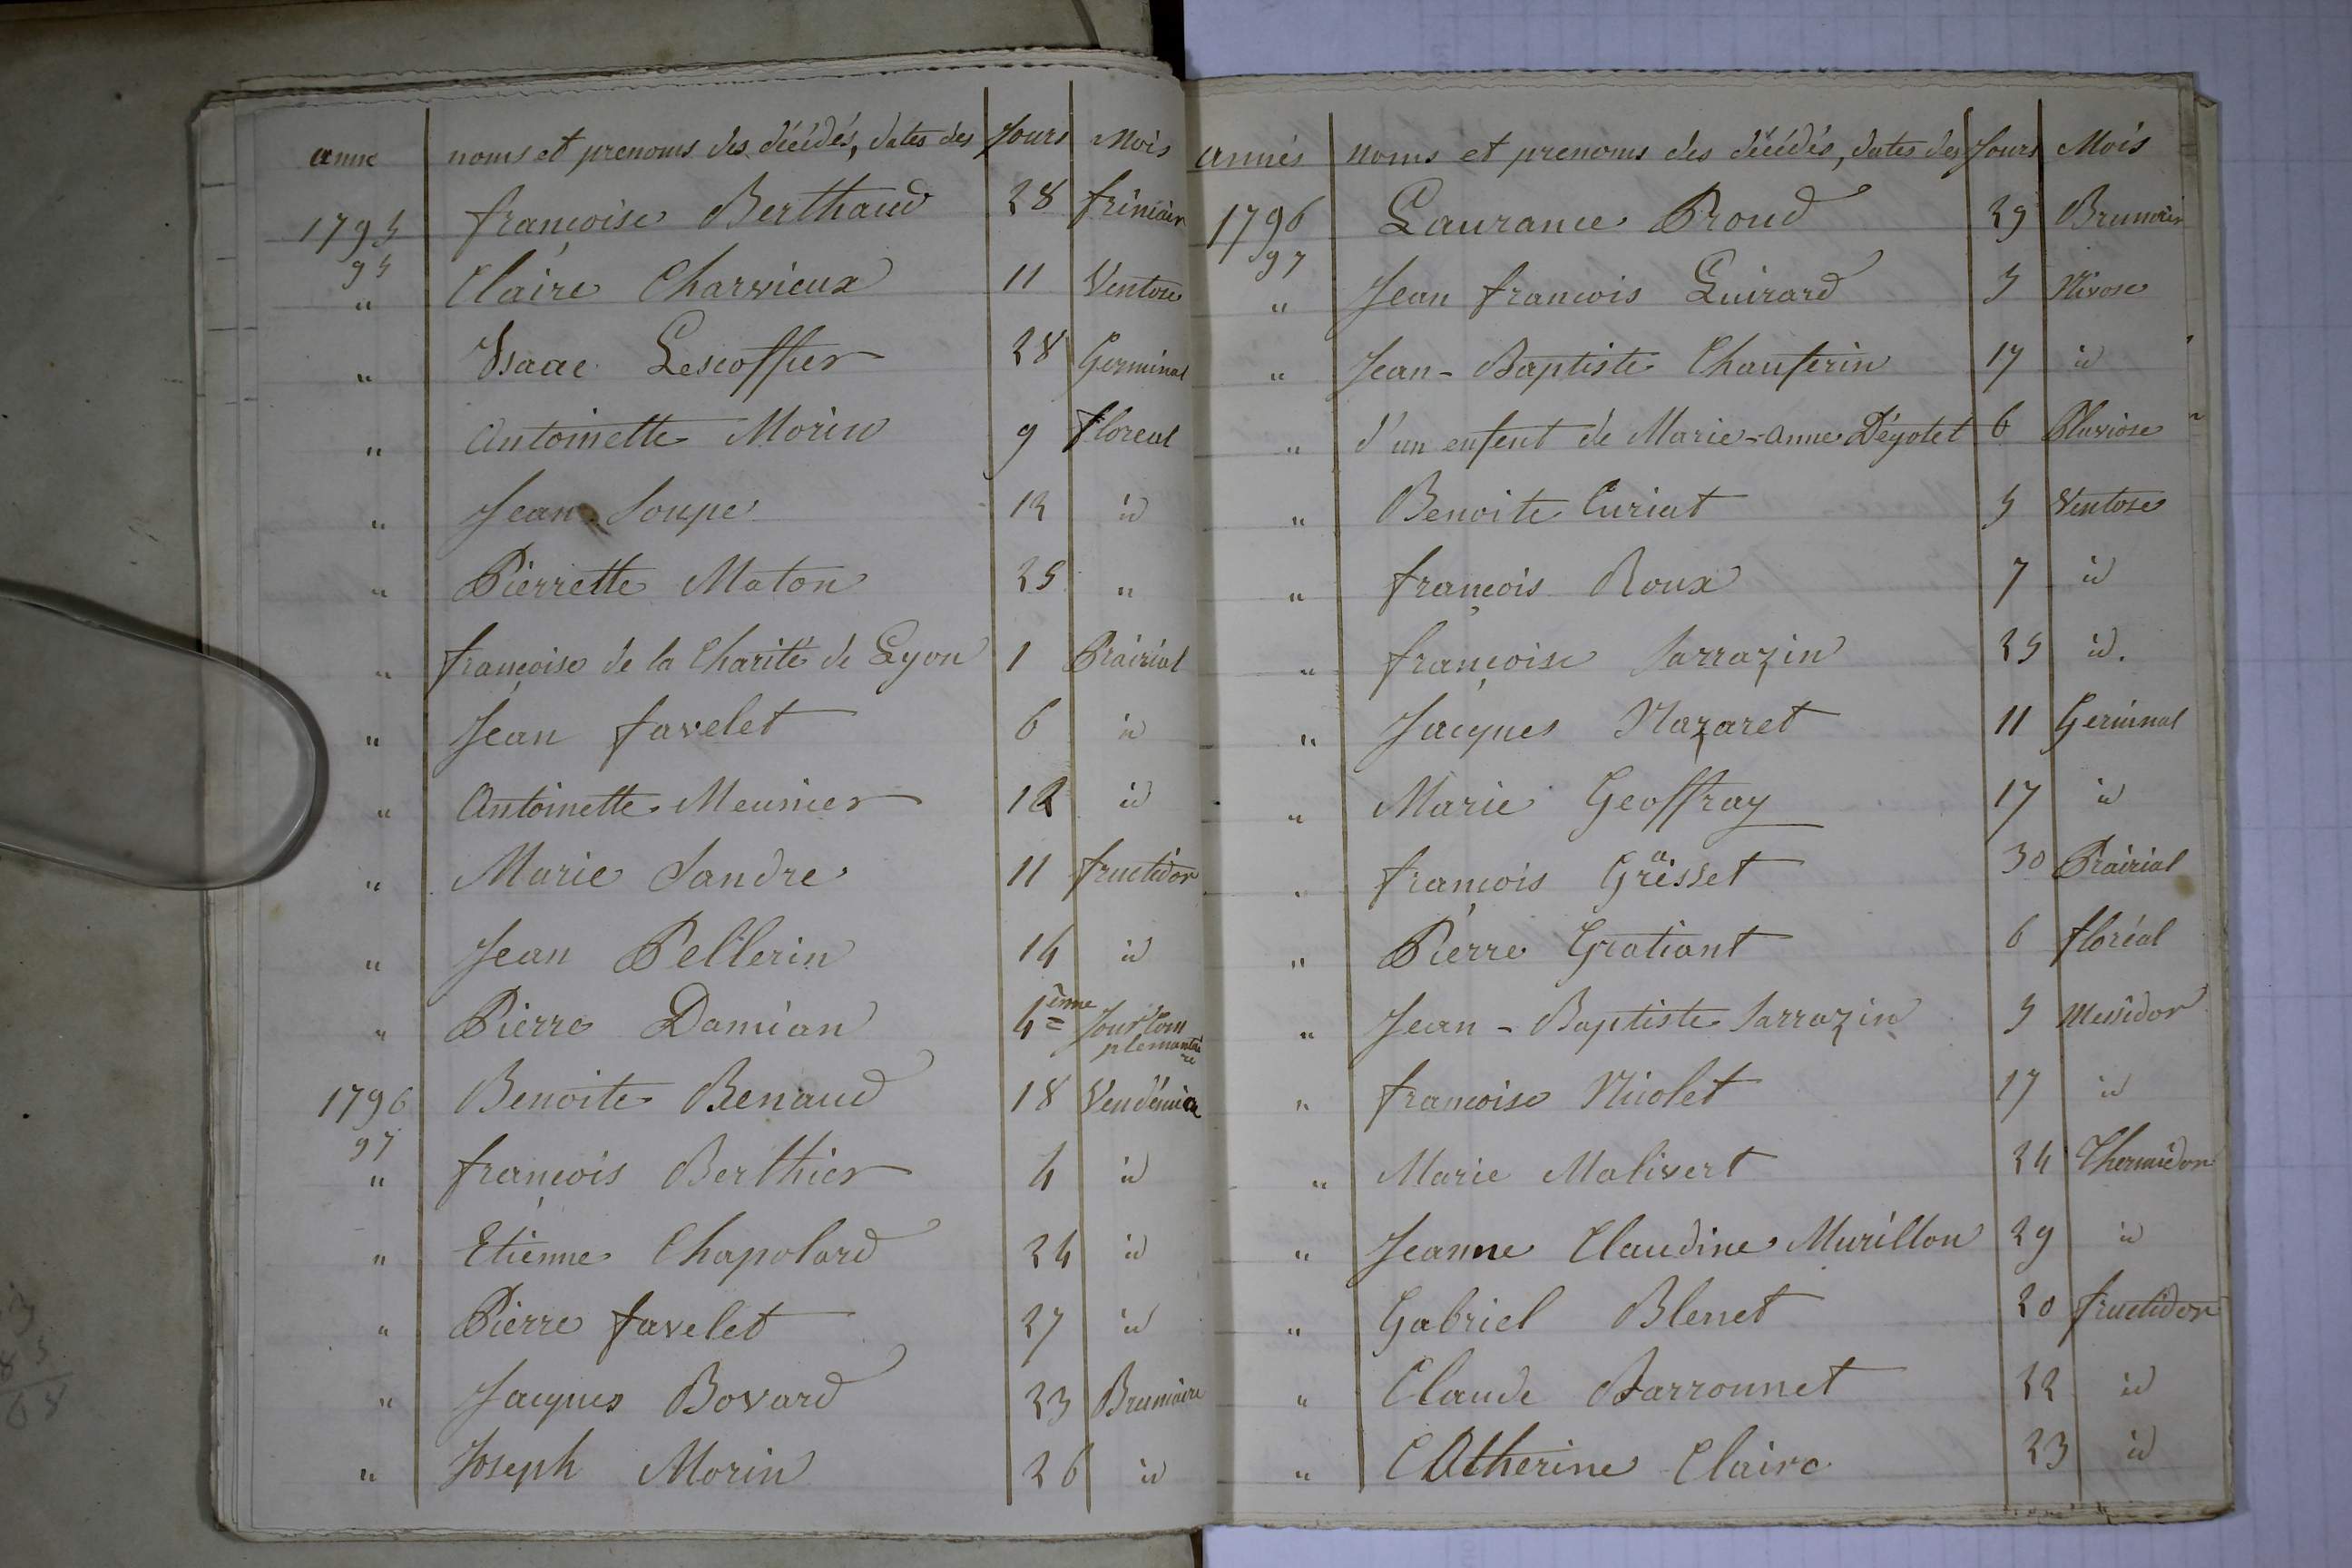 anne noms et prenoms des décédés, dates des Jours Mois
1795 françoise Berthaud 28 frimaire
95
" Claire Charvieux 11 Ventose
" Isaac Lescoffier 28 Germinal
" Antoinette Morin 9 floreal
" Jean Soupe 12 id
" Pierrette Maton 25 "
" françoise de la Charité de Lyon 1 Prairial
" Jean favelet 6 id
" Antoinette Meunier 12 id
" Marie Sandre 11 fructidor
" Jean Pellerin 14 id
" Pierre Damian 4ème Jour Com
plemantai
re
1796 Benoite Benaud 18 Vendémia
97
" françois Berthier 4 id
" Etienne Chapolard 24 id
" Pierre favelet 27 id
" Jacques Bovard 23 Brumaire
" Joseph Morin 26 id
annés noms et prenoms des décédés, dates des Jours Mois
1796 Laurance Proud 29 Brumair
97
" Jean francois Guirard 5 Nivose
" Jean-Baptiste Chauferin 17 id
" d'un enfent de Marie-Anne Dégotet 6 Pluviose
" Benoite Curiat 5 Ventose
" françois Roux 7 id
" françoise Sarrazin 25 id.
" Jacques Nazaret 11 Germinal
" Marie Geoffray 17 id
. françois Grësset 30 Prairial
" Pierre Gratiant 6 floréal
" Jean-Baptiste Sarrazin 5 Messidor
" francoise Nicolet 17 id
" Marie Malivert 24 Thermidor
" Jeanne Claudine Murillon 29 id
" Gabriel Blenet 20 fructidor
" Claude Barronnet 22 id
" CAtherine Claire 23 id